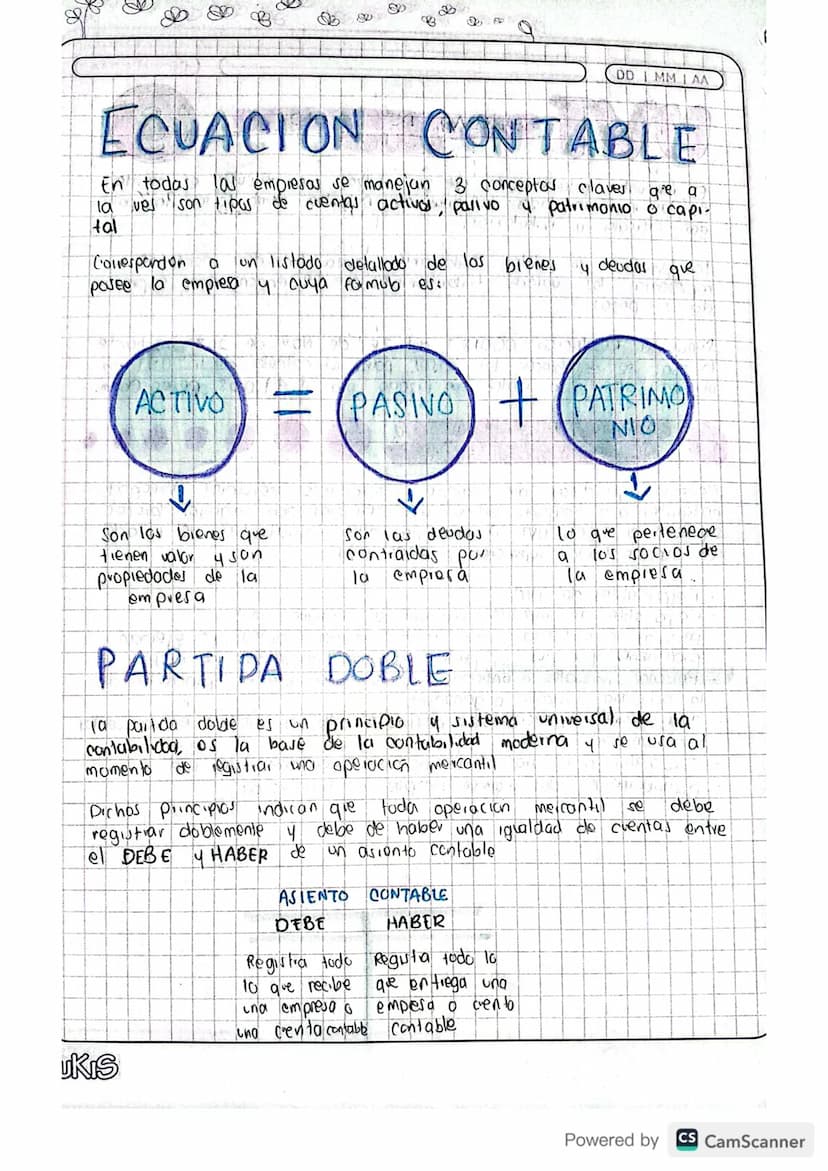 DD | MM | AA
ECUACION CONTABLE
En todas las empresas se manejan 3 conceptos claves que a
la ves son tipos de cuentas activos, pasivo y patrimonio o capi-
tal
Corresponden a un listado detallado de los bienes y deudas que
posee la empresa y cuya formula es:
ACTIVO = PASIVO + PATRIMO
NIO
Son los bienes que
tienen valor y son
propiedades de la
empresa
son las deudas
contraidas por
la empresa
lo que pertenece
a los socios de
la empresa.
PARTIDA DOBLE
la partida doble es un principio y sistema universal de la
contabilidad, es la base de la contabilidad moderna y se usa al
momento de registrar una operacion mercantil
Dichos principios indican que toda operacion mercantil se debe
registrar doblemente y debe de haber una igualdad de cuentas entre
el DEBE y HABER de un asiento contable
ASIENTO CONTABLE
DEBE HABER
Registra todo
lo que recibe
una empresa o
una cuenta contable
Registra todo lo
que entrega una
empesa o cuenta
contable
uKIS
Powered by CS CamScanner